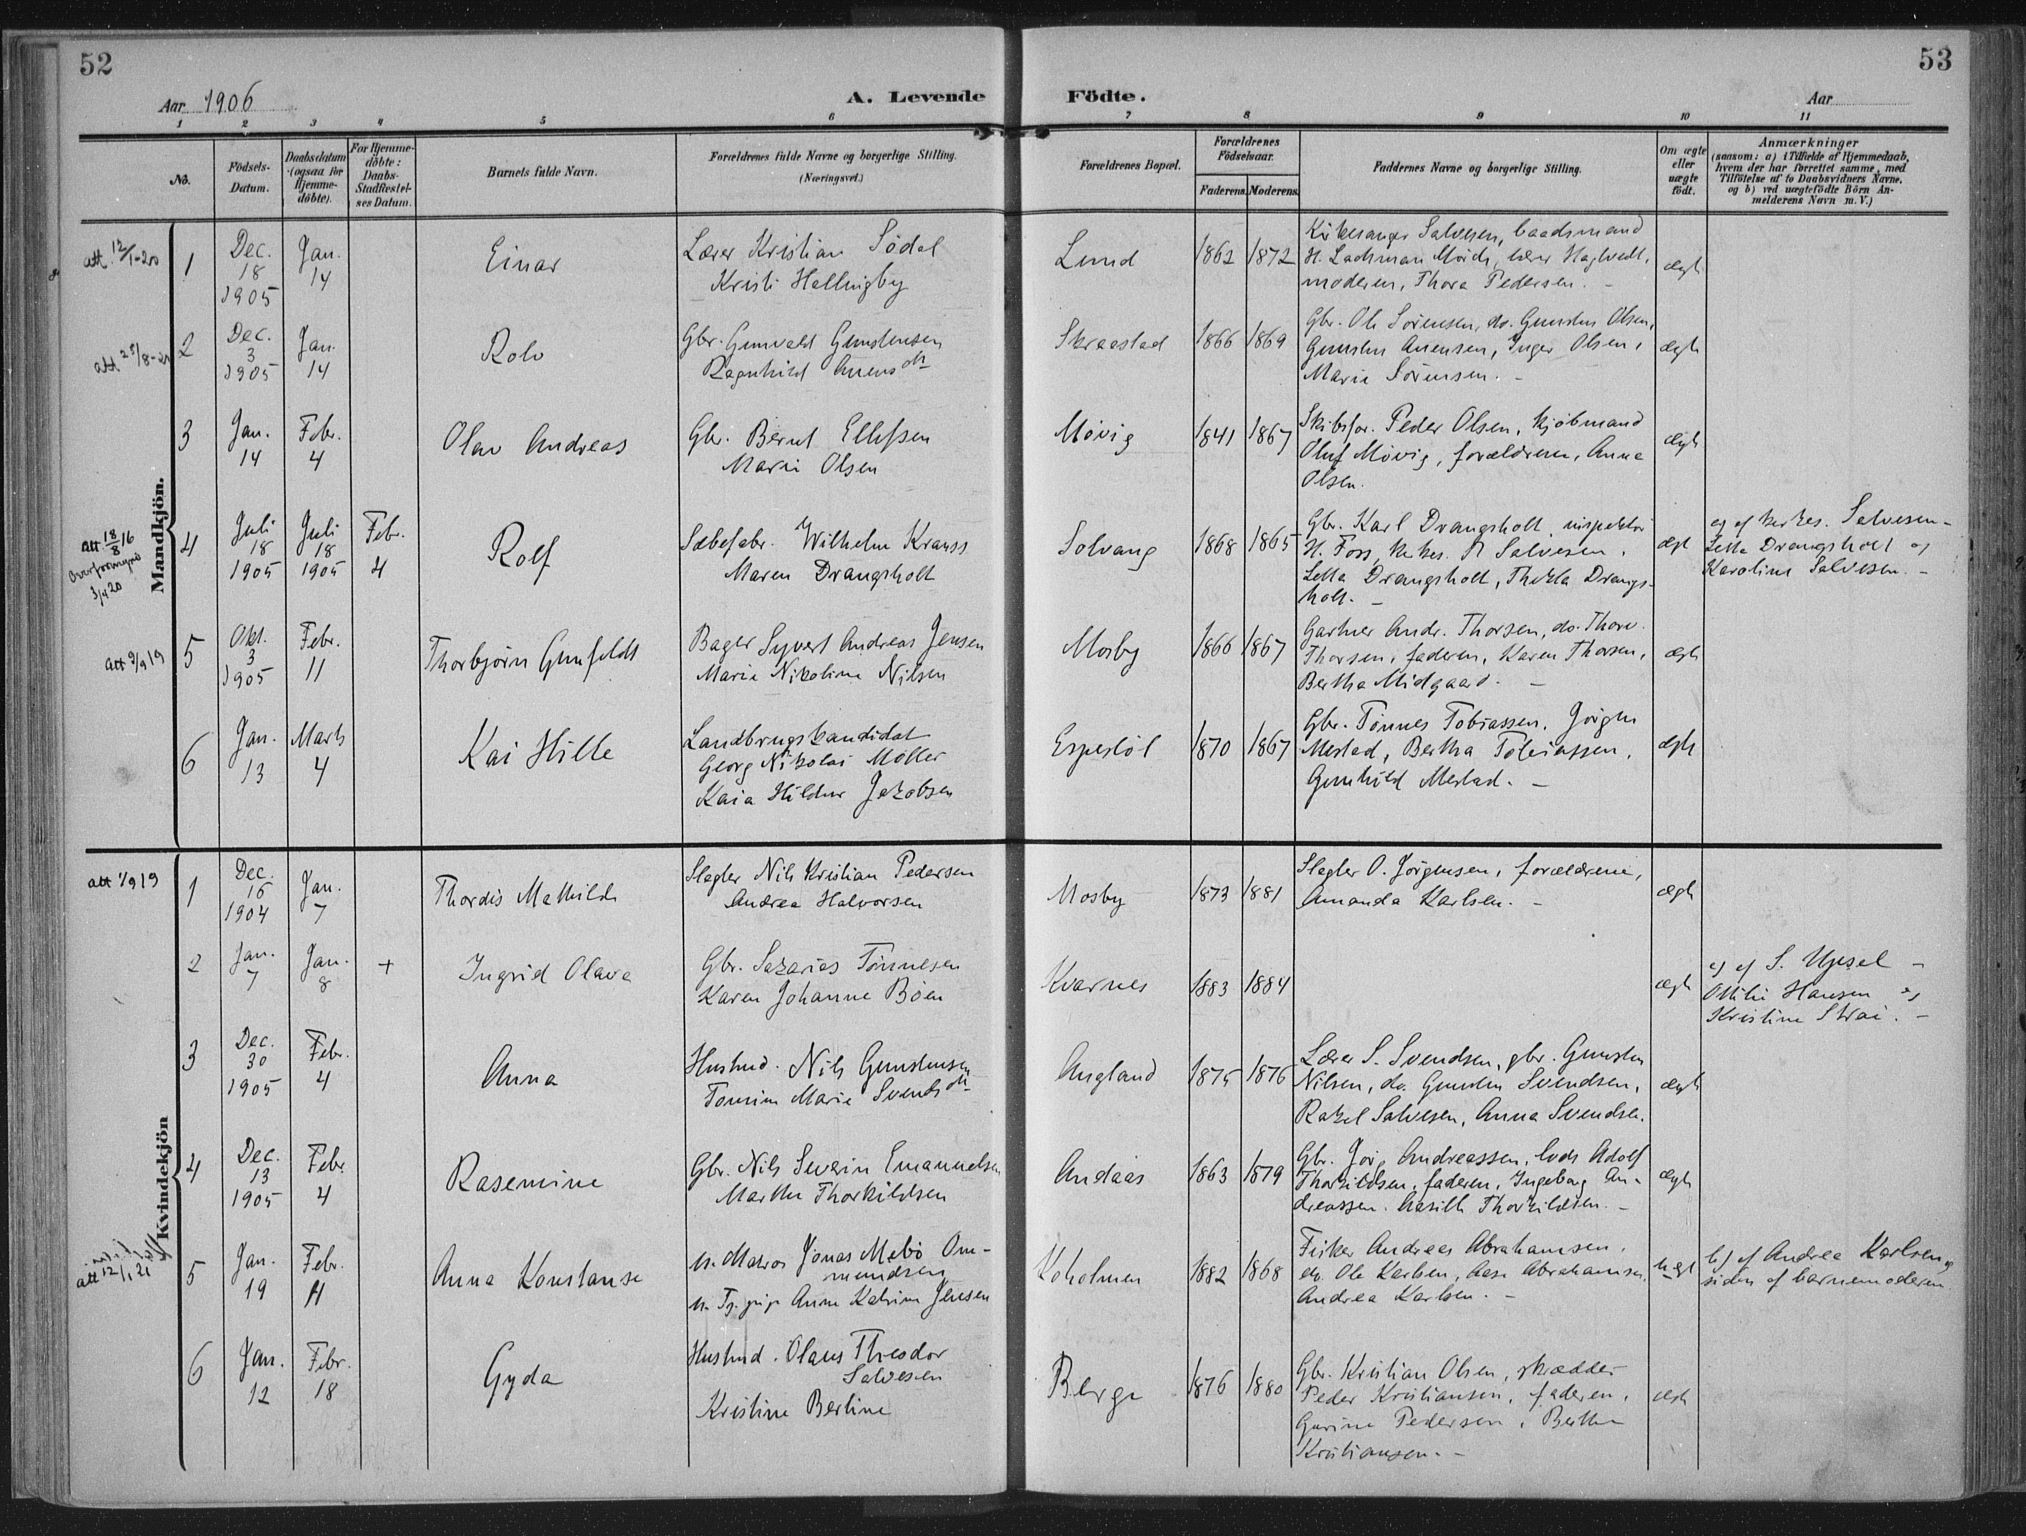 52
53
Aar 1906
A. Levende
Födte.
Aar
1 2 3 4 5 6 7 8 9 10 11
No.
Födsels-Datum.
Daabsdatum (ogsaa for Hjemme-döbte).
For Hjemme-döbte: Daabs-Stadfæstel-ses Datum.
Barnets fulde Navn.
Forældrenes fulde Navne og borgerlige Stilling.
(Næringsvei.)
Forældrenes Bopæl.
Forældrenes Födselsaar.
Faderens. Moderens.
Faddernes Navne og borgerlige Stilling.
Om ægte eller uægte födt.
Anmærkninger
(saasom: a) i Tilfælde af Hjemmedaab,
hvem der har forrettet samme, med
Tilföielse af to Daabsvidners Navne,
og b) ved uægtefödte Börn An-
melderens Navn m. V.)
Mandkjön.
att 12/1-20
1
Dec. 18 1905
Jan. 14
Einar
Lærer Kristian Södal
Kristi Hellingby
Lund
1862 1872
Kirkesanger Salvesen, baadsmand
H. Ladsman Moich, lærer Hagtvedt,
moderen, Thora Pedersen. -
ægt
att 25/8-20
2
Dec. 3 1905
Jan. 14
Rolv
Gbr. Gunvald Gundensen
Ragnhild Anensdt
Skraastad
1866 1869
Gbr. Ole Sörensen, do. Gunstein Olsen,
Anensen, Inger Olsen,
Marie Sörensen. -
ægt
3
Jan. 14
Febr. 4
Olav Andreas
Gbr. Bernt Ellefsen
Marie Olsen
Mövig
1841 1867
Skibsfør. Peder Olsen, kjöbmand
Oluf Mövig, forældrene, Anna
Olsen.
ægt
att 18/8 16
3/4 20
4
Juli 18 1905
Juli 18 1905
Febr. 4
Rolf
Sæbefabr. Wilhelm Krauss
Maren Drangsholt
Solvang
1868 1865
Gbr. Karl Drangsholt, inspektör
H. Foss, kirkes. Salvesen,
Letta Drangsholt, Thekla Drangs-
holt. -
ægt
a) af kirkes. Salvesen -
Letta Drangsholt og
Karoline Salvesen. -
att 9/9 19
5
Okt. 3 1905
Febr. 11
Thorbjörn Gunfeldt
Bager Syvert Andreas Jensen
Marie Nikoline Nilsen
Mosby
1866 1867
Gartner Andr. Thorsen, do. Thorv.
Thorsen, faderen, Karen Thorsen,
Bertha Midgaard. -
ægt
6
Jan. 13
Marts 4
Kai Hille
Landbrugskandidat
Georg Nikolai Möller
Kaia Hildur Jakobsen
Espestöl
1870 1867
Gbr. Tönnes Tobiassen, Jörgen
Mestad, Bertha Tobiassen,
Gunhild Mestad. -
ægt
Kvindekjön
att 1/9 19
1
Dec. 16 1904
Jan. 7
Thordis Mathilde
Slagter Nils Kristian Pedersen
Andrea Halvorsen
Mosby
1873 1881
Slagter O. Jörgensen, forældrene,
Amanda Karlsen. -
ægt
2
Jan. 7
Jan. 8
+
Ingrid Olava
Gbr. Sakarias Tönnesen
Karen Johanne Böen
Kvarnes
1883 1884
ægt
a) af S. Upsal -
Ottilie Hansen og
Kristine Strai. -
3
Dec. 30 1905
Febr. 4
Anna
Husmd. Nils Gundensen
Tomine Marie Svendsdt
Augland
1875 1876
Lærer S. Svendsen, gbr. Gunsten
Nilsen, do. Gunsten Svendsen,
Rakel Salvesen, Anna Svendsen.
ægt
4
Dec. 13 1905
Febr. 4
Rasemine
Gbr. Nils Severin Emanuelsen
Marthe Thorkildsen
Andaas
1863 1879
Gbr. Jörg. Andreassen, Adolf
Thorkildsen, faderen, Ingeborg An-
dreassen, Aasille Thorkildsen. -
ægt
att 12/1 21
5
Jan. 19
Febr. 11
Anna Konstanse
u. Matros Jonas Mebö Om-
mundsen
u. Tj. pige Anne Katrine Jensen
Koholmen
1882 1868
Fisker Andreas Abrahamsen,
do. Ole Karlsen, Aase Abrahamsen,
Andrea Karlsen. -
uægt
b) af Andrea Karlsen, og
siden af barnemoderen
6
Jan. 12
Febr. 18
Gyda
Husmd. Olaus Theodor
Salvesen
Kristine Bertine
Berge
1876 1880
Gbr. Kristian Olsen, skrædder
Peder Kristiansen, faderen,
Gurine Pedersen, Berthe
Kristiansen. -
ægt